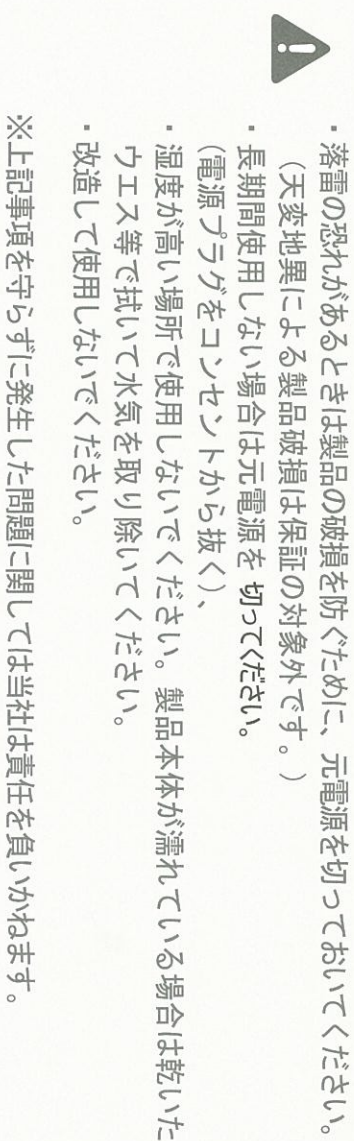 ・落雷の恐れがあるときは製品の破損を防ぐために、元電源を切っておいてください。
（天変地異による製品破損は保証の対象外です。）
・長期間使用しない場合は元電源を 切ってください。
（電源プラグをコンセントから抜く）、
・湿度が高い場所で使用しないでください。製品本体が濡れている場合は乾いた
ウエス等で拭いて水気を取り除いてください。
・改造して使用しないでください。
※上記事項を守らずに発生した問題に関しては当社は責任を負いかねます。